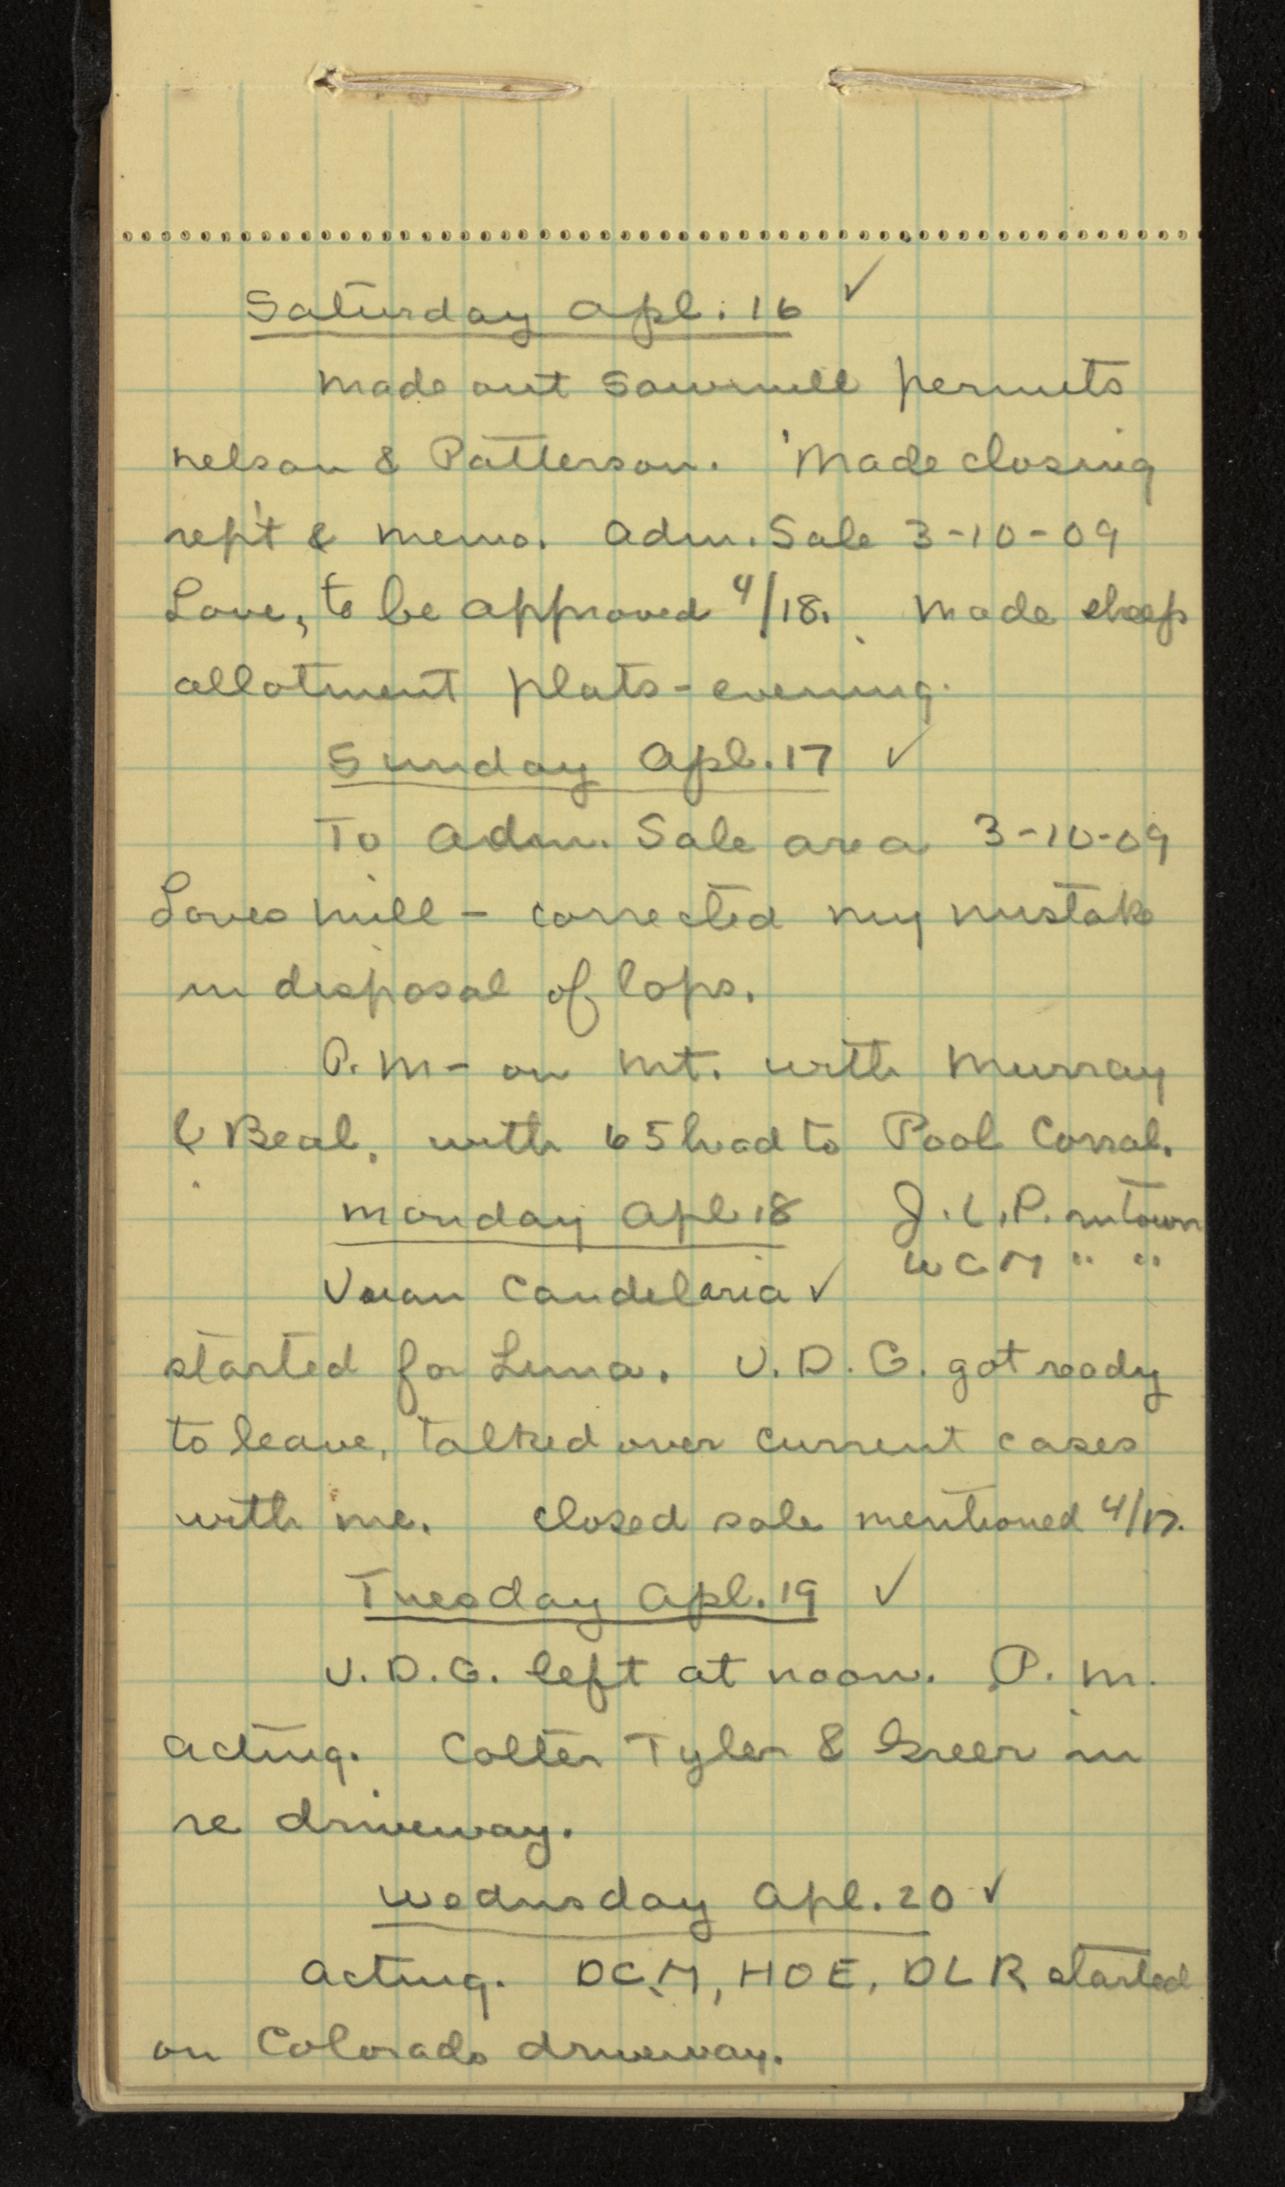 Saturday Apl. 16 ✓
Made out Sawmill permits
Nelson & Patterson. Made closing
rep't & memo. Adm. Sale 3-10-09
Love, to be approved 4/18. Made sheep
allotment plats - evening.
Sunday Apl. 17 ✓
To Adm. Sale area 3-10-09
Loves Mill - corrected my mistake
in disposal of lops.
P.M - on Mt. with Murray
& Beal, with 65 head to Pool Corral.
Monday Apl 18 J.L.P. in town
WCM " "
Juan Candelaria ✓
started for Luna. J.D.G. got ready
to leave, talked over current cases
with me. Closed sale mentioned 4/17.
Tuesday Apl. 19 ✓
J.D.G. left at noon. P.M.
Acting. Colter Tyler & Greer in
re driveway.
Wednsday Apl. 20 ✓
Acting. DCM, HOE, DLR started
on Colorado driveway.